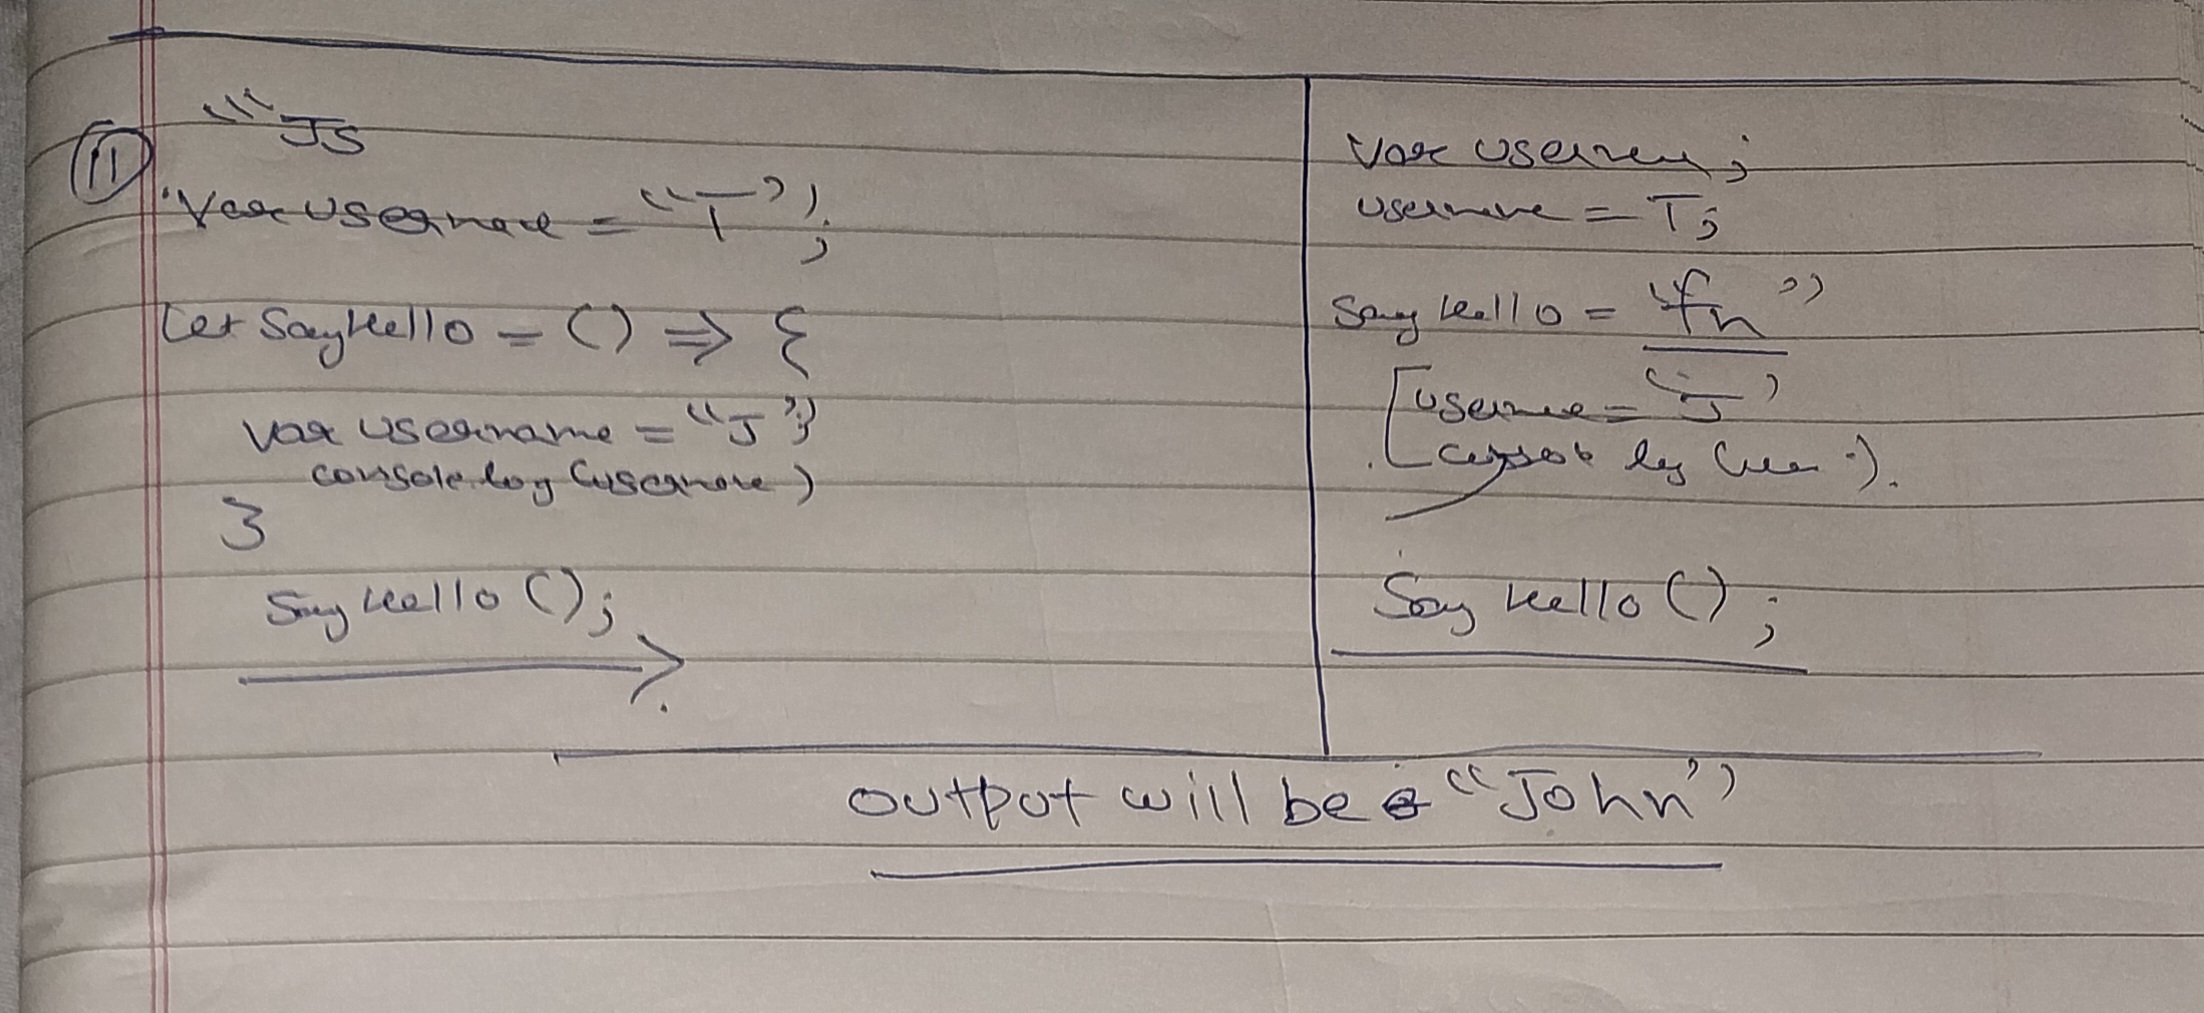 11
JS
var username = "T");
let SayHello = () => {
var username = "J";
console.log (username)
}
SayHello ();
var username ;
username = T;
Say hello = "fn"
[username = "J"
Say hello () ;
output will be "John"